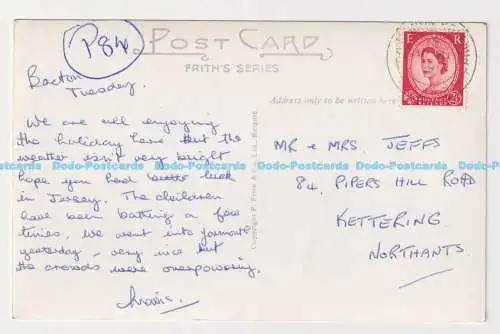 P84
POST CARD
FRITH'S SERIES
E R
2½D
Bacton
Tuesday.
Address only to be written here
We are all enjoying
the holiday here but the
weather isn't very bright
hope you had better luck
in Jersey. The children
have been bathing a few
times. We went into Yarmouth
yesterday, very nice but
the crowds were overpowering.
MR & MRS. JEFFS
84, PIPERS HILL ROAD
KETTERING
NORTHANTS.
Copyright F. Frith & Co. Ltd., Reigate
Dodo-Postcards Dodo-Postcards Dodo-Postcards Dodo-Postcards Dodo-Postcards Dodo-Postcards